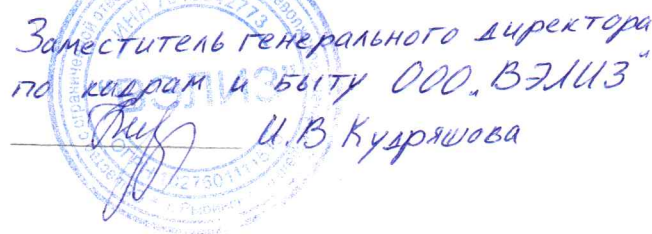 Заместитель генерального директора
по кадрам и быту ООО „ВЭЛИЗ"
И.В Кудряшова